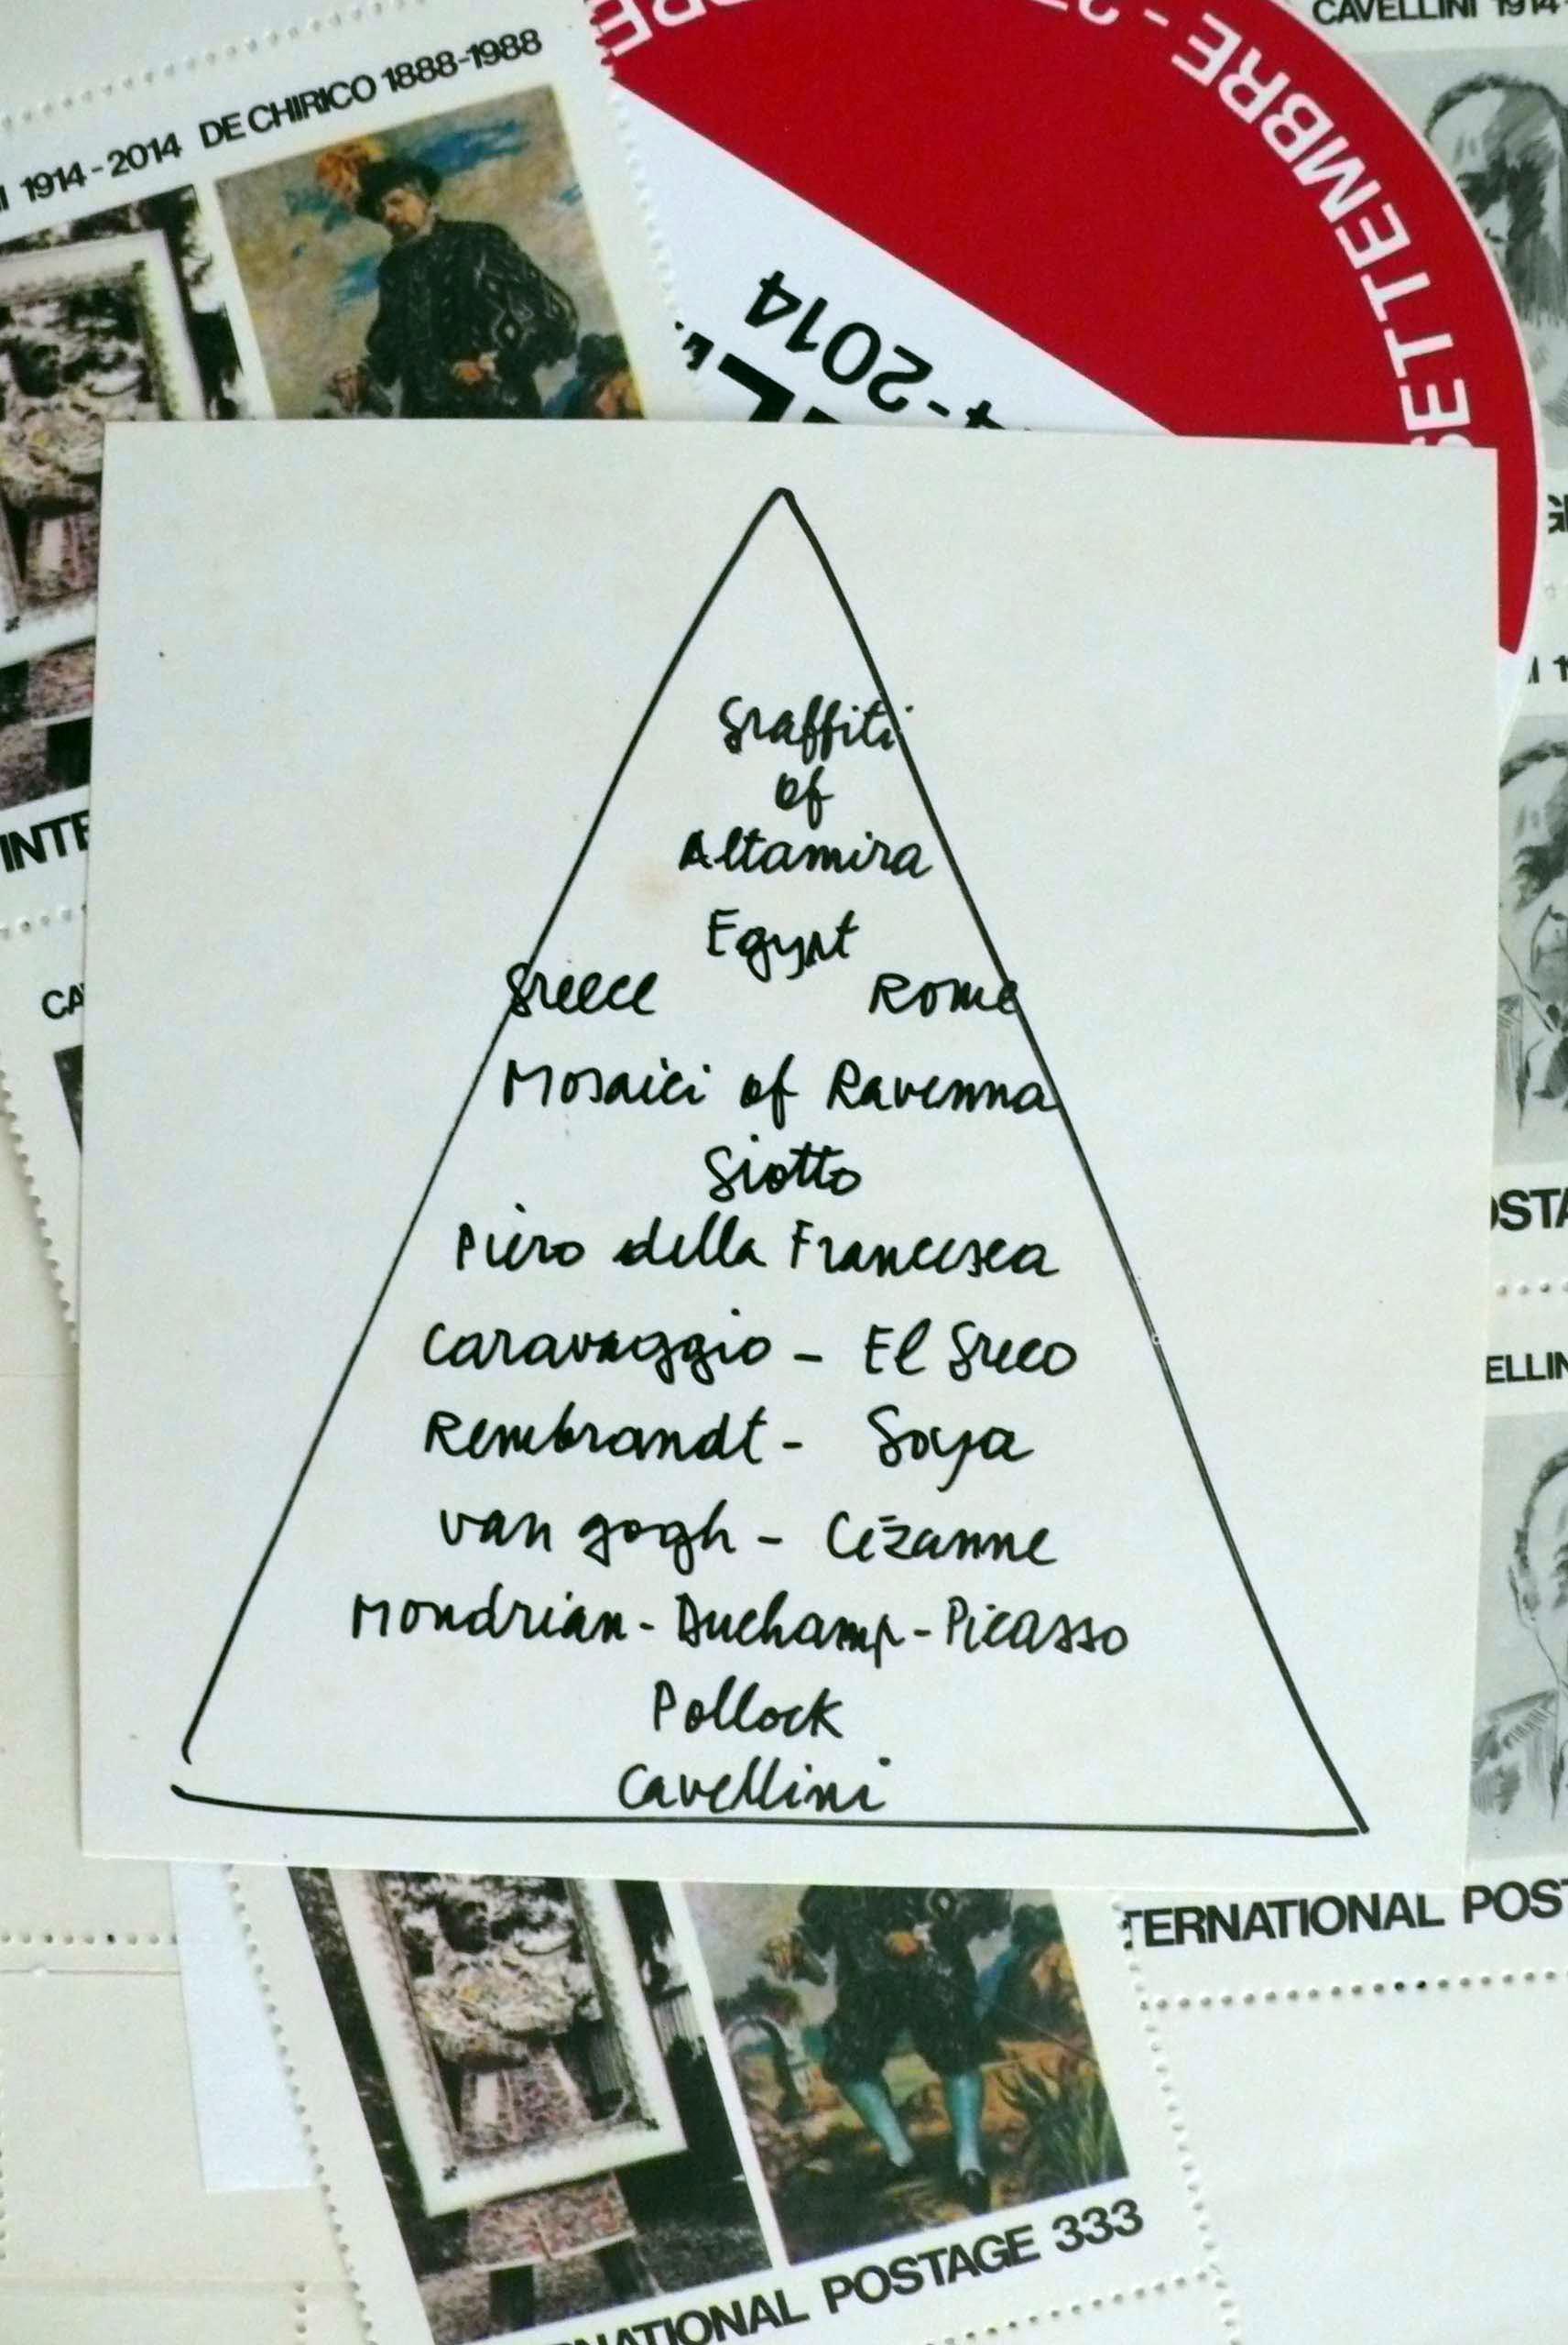 CAVELLINI 1914-
1914-2014 DE CHIRICO 1888-1988
SETTEMBRE -
-2014
Graffiti
of
Altamira
Egypt
Greece Rome
Mosaici of Ravenna
Giotto
Piero della Francesca
Caravaggio - El Greco
Rembrandt - Goya
van gogh - Cézanne
Mondrian - Duchamp - Picasso
Pollock
Cavellini
INTE
CA
OSTA
ELLIN
TERNATIONAL POST
NATIONAL POSTAGE 333